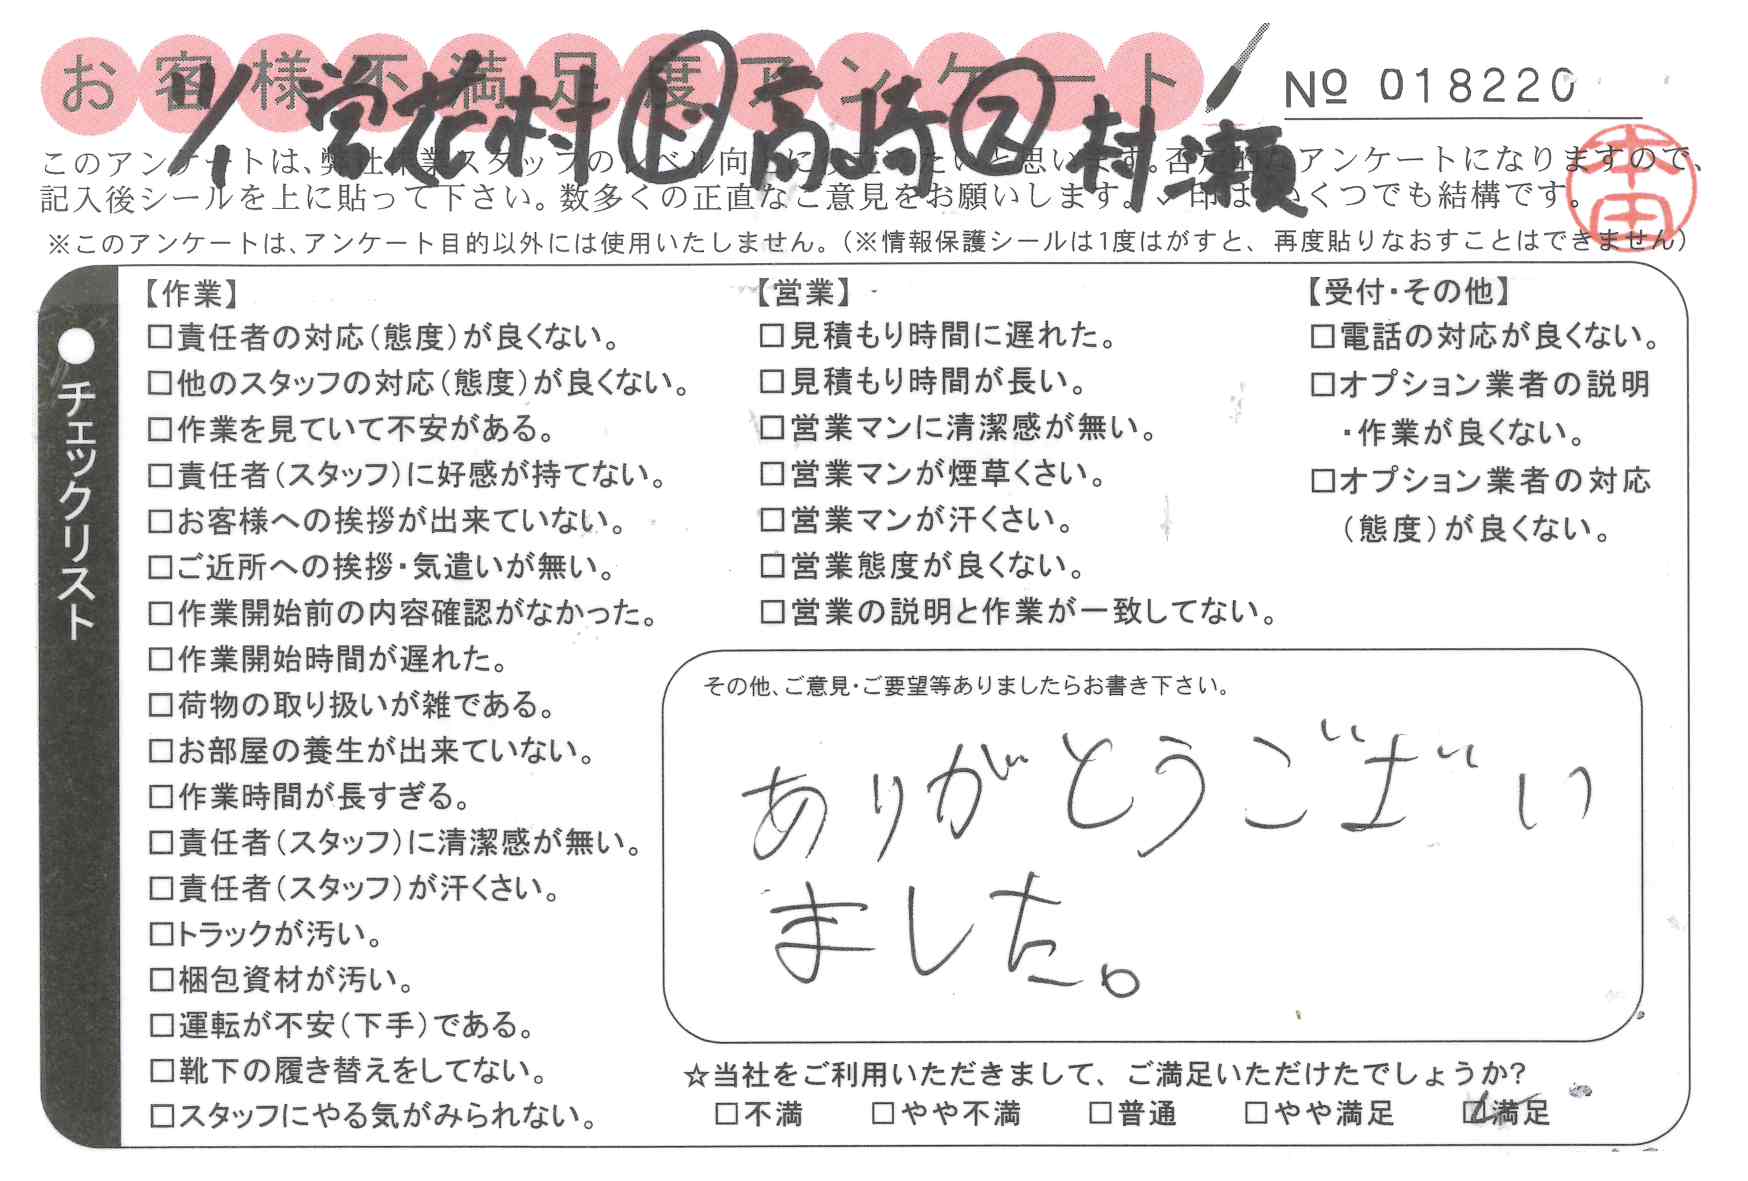 お客様不満足度アンケート
No 018220
11/1 営花村 ド 高崎 ス 村瀬
本田
このアンケートは、弊社作業スタッフのレベル向上に役立てたいと思います。否定的なアンケートになりますので、
記入後シールを上に貼って下さい。数多くの正直なご意見をお願いします。✓印はいくつでも結構です。
※このアンケートは、アンケート目的以外には使用いたしません。(※情報保護シールは1度はがすと、再度貼りなおすことはできません)
●チェックリスト
【作業】
□責任者の対応(態度)が良くない。
□他のスタッフの対応(態度)が良くない。
□作業を見ていて不安がある。
□責任者(スタッフ)に好感が持てない。
□お客様への挨拶が出来ていない。
□ご近所への挨拶・気遣いが無い。
□作業開始前の内容確認がなかった。
□作業開始時間が遅れた。
□荷物の取り扱いが雑である。
□お部屋の養生が出来ていない。
□作業時間が長すぎる。
□責任者(スタッフ)に清潔感が無い。
□責任者(スタッフ)が汗くさい。
□トラックが汚い。
□梱包資材が汚い。
□運転が不安(下手)である。
□靴下の履き替えをしてない。
□スタッフにやる気がみられない。
【営業】
□見積もり時間に遅れた。
□見積もり時間が長い。
□営業マンに清潔感が無い。
□営業マンが煙草くさい。
□営業マンが汗くさい。
□営業態度が良くない。
□営業の説明と作業が一致してない。
【受付・その他】
□電話の対応が良くない。
□オプション業者の説明
・作業が良くない。
□オプション業者の対応
(態度)が良くない。
その他、ご意見・ご要望等ありましたらお書き下さい。
ありがとうござい
ました。
☆当社をご利用いただきまして、ご満足いただけたでしょうか?
□不満 □やや不満 □普通 □やや満足 ☑満足